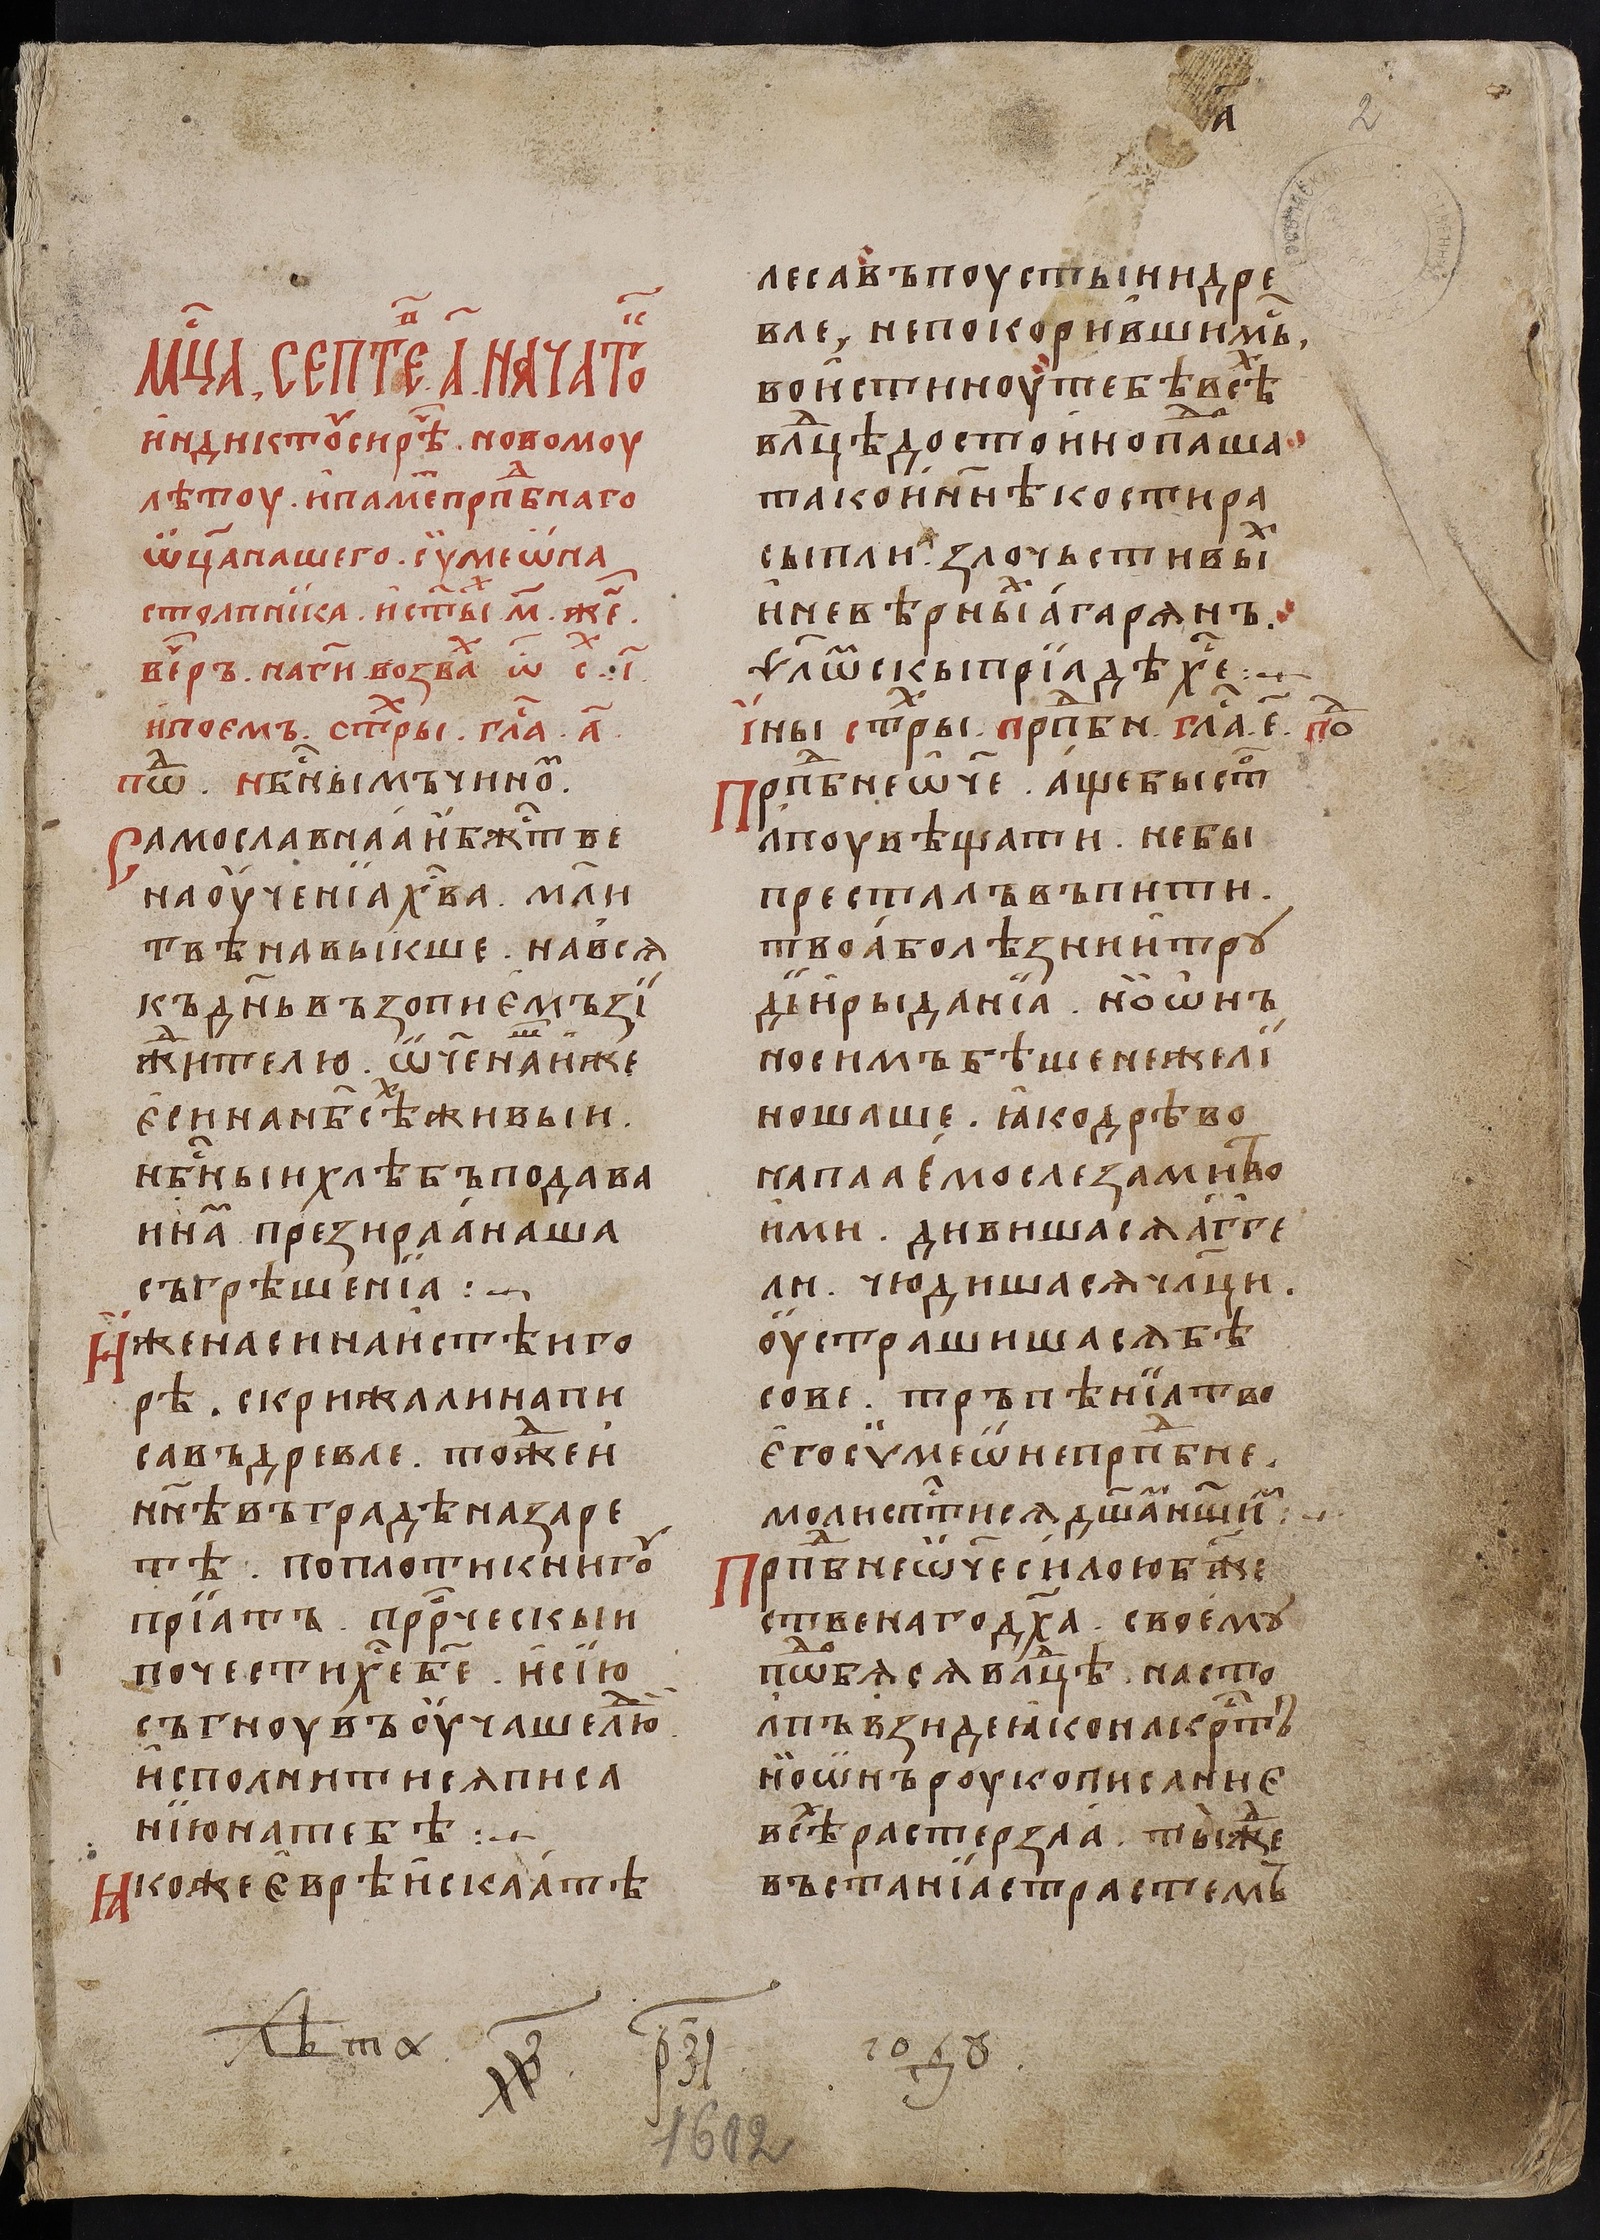 а҃
2
мⷭ҇ца. септеⷡ҇. а҃. начатоⷦ҇
индиктоу сирѣⷱ҇. новомоу
лѣтоу. и памⷮе прпⷣбнаго
ѿца нашего. сѵмеѡна
столпника. и ст҃ыⷯ м҃. же҃.
веⷱ҇ръ. на гⷭ҇и возваⷯ. ѿ с҃. і҃.
и поемъ. стⷯры. глⷭ҇а. а҃.
пѡⷣ. нбⷭ҇нымъ чиноⷨ.
Самославнаа и бжⷭ҇тве
на оученїа хⷭ҇ва. мл҃и
твѣ навыкше. на вся
къ дн҃ь възопиемъ зї
жⷣителю. ѿч҃е наⷲ иже
еси на нб҃сѣⷯ живыи.
нбⷭ҇ныи хлѣбъ подава
и наⷨ презираа наша
съгрѣшенїа :~
Иже на синаистѣи го
рѣ. скрижали напи
савъ древле. тоⷤ и
нн҃ѣ въ градѣ назаре
тѣ. по плоти книгоу
прїатъ. прⷪ҇рческыи
почести хⷭ҇е бж҃е. и сїю
съгноувъ оучаше люⷣ.
исполнитися писа
нїю на тебѣ :~
Якоже еврѣискаа тѣ
леса въ поустыни дре
вле, непокорившимⷭ҇ъ,
воистинноу тебѣ всѣⷯ
влⷣцѣ достоино паⷣша
тако и нн҃ѣ кости ра
сыпли. злочьстивыⷯ
и невѣрныⷯ агарянъ.
ѱал҃ѡмскы прїадѣ хⷭ҇е :~
ины стⷯры. прпⷣбн. глⷭ҇а. е҃. поⷣ
Прпⷣбне ѿч҃е. аще бы стоⷧ
лпоу вѣщати. не бы
престалъ въпити.
твоа болѣзни и тру
ды и рыданїа. но ѡнъ
носимъ бѣше нежели
ношаше. яко древо
напааемо слезами тво
ими. дивишася агге
ли. чюдишася чл҃ци.
оустрашишася бѣ
сове. тръпѣнїа тво
его сѵмеѡне прпⷣбне.
моли спⷭ҇тися дш҃амъ нш҃иⷨ :~
Прпⷣбне ѿч҃е силою бже
ственаго дх҃а. своемоу
пѡⷣбяся влⷣцѣ. на сто
лпъ взиде яко на крⷭ҇тъ
но ѡнъ роукописание
всѣⷯ растерзаа. ты же
въстанїа страстемъ
Лѣта. ҂зр҃. рк҃ї году.
1612